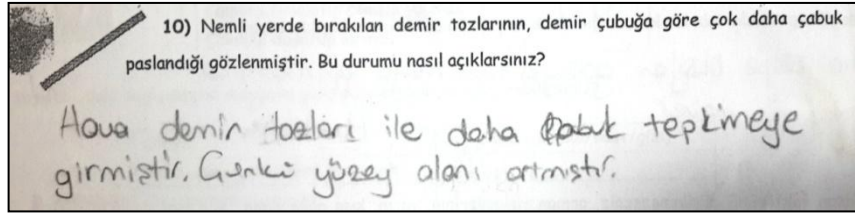 10) Nemli yerde bırakılan demir tozlarının, demir çubuğa göre çok daha çabuk
paslandığı gözlenmiştir. Bu durumu nasıl açıklarsınız?
Hava demir tozları ile daha çabuk tepkimeye
girmiştir. Çünkü yüzey alanı artmıştır.